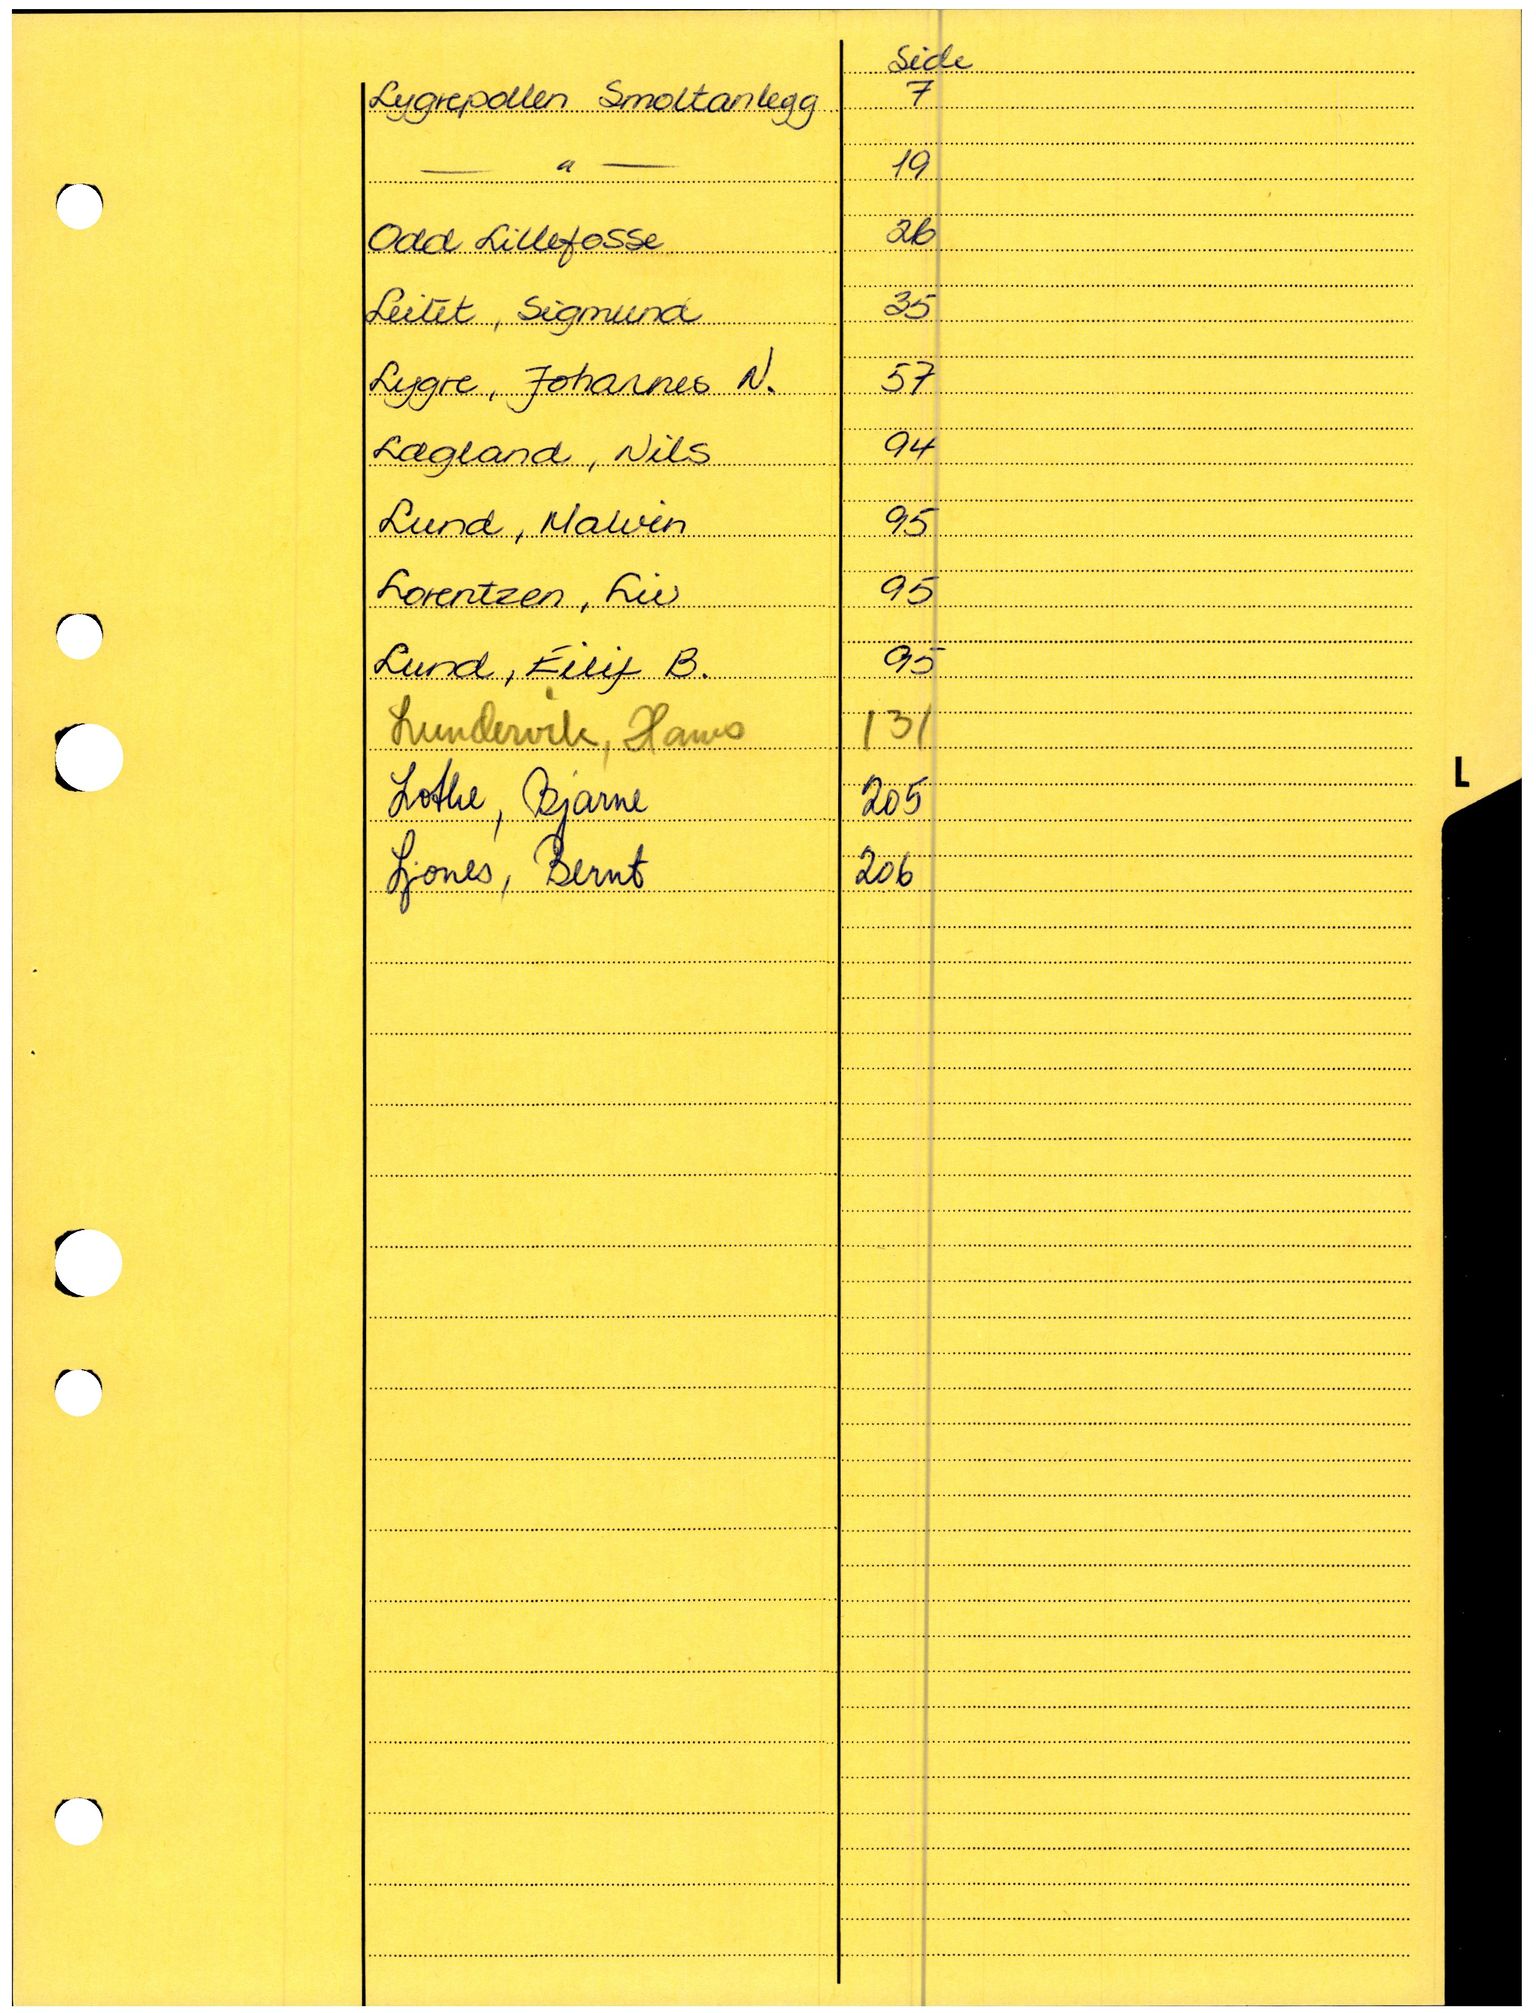 Side
Lygrepollen Smoltanlegg 7
— " — 19
Odd Lillefosse 26
Leitet, Sigmund 35
Lygre, Johannes N. 57
Lægland, Nils 94
Lund, Malvin 95
Lorentzen, Liv 95
Lund, Eilif B. 95
Lundervik, Hans 131
L
Lothe, Bjarne 205
Ljones, Bernt 206